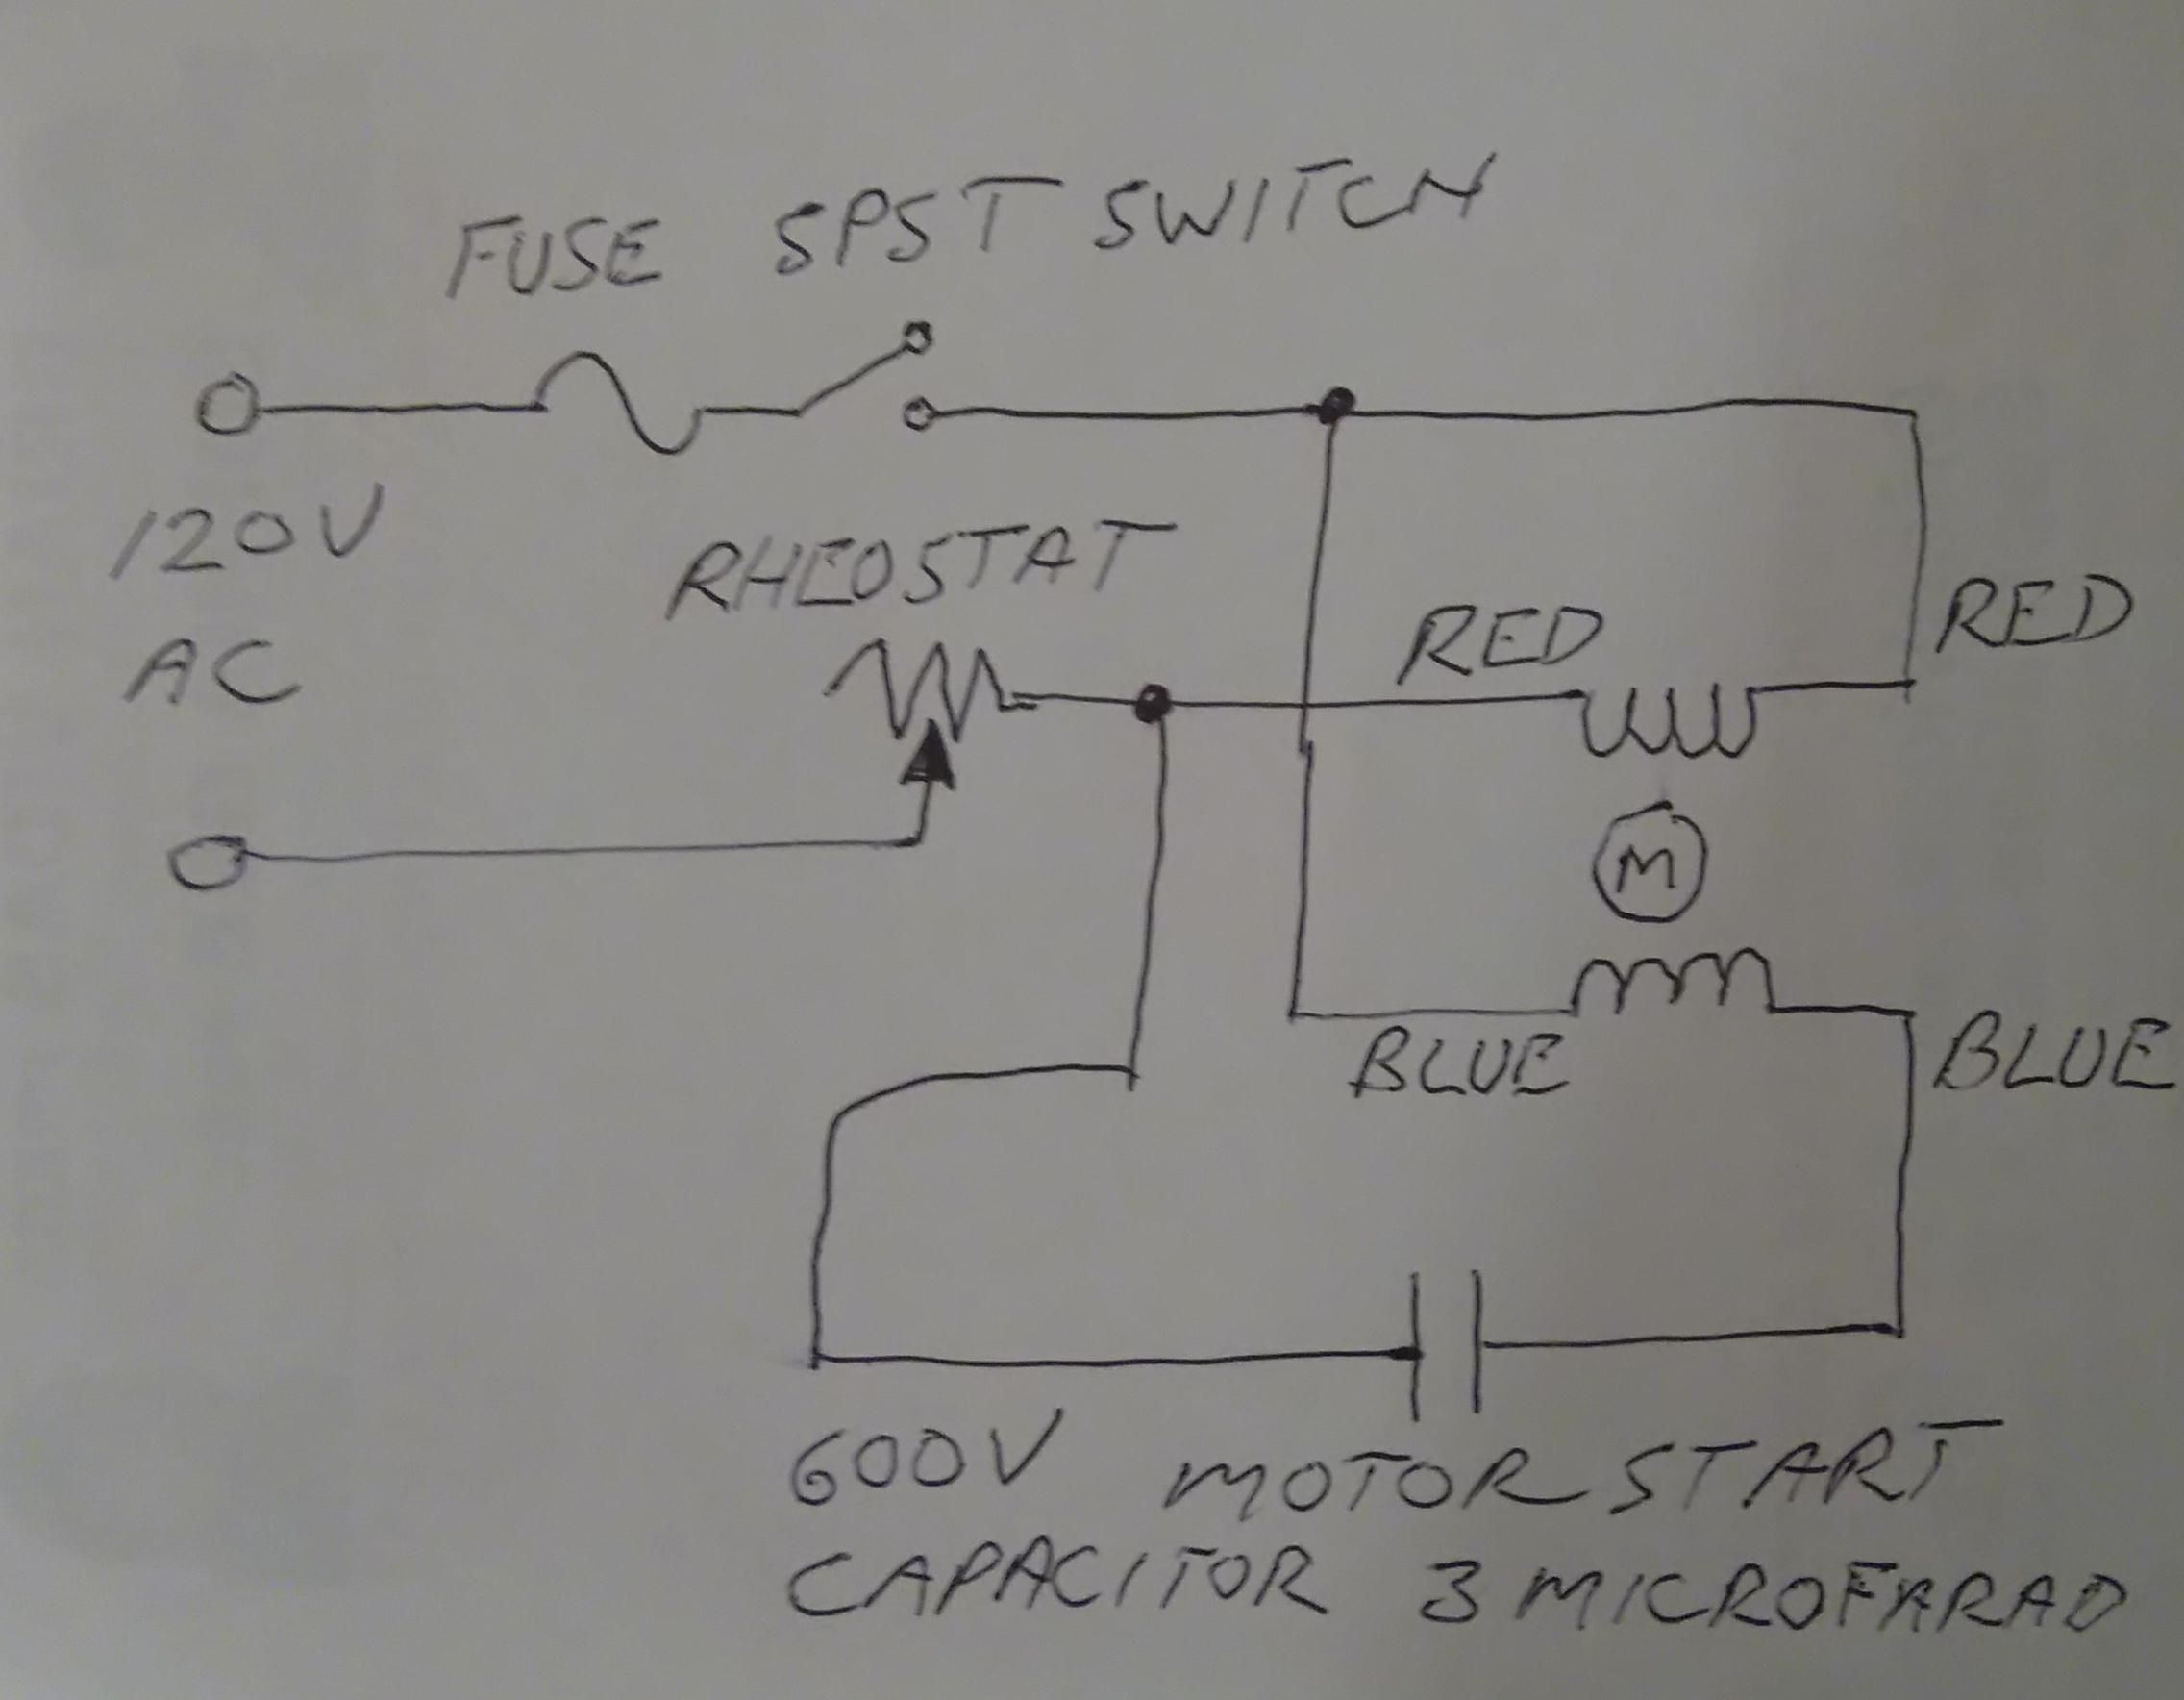 FUSE SPST SWITCH
120V
AC
RHEOSTAT
RED
RED
M
BLUE
BLUE
600V MOTOR START
CAPACITOR 3 MICROFARAD